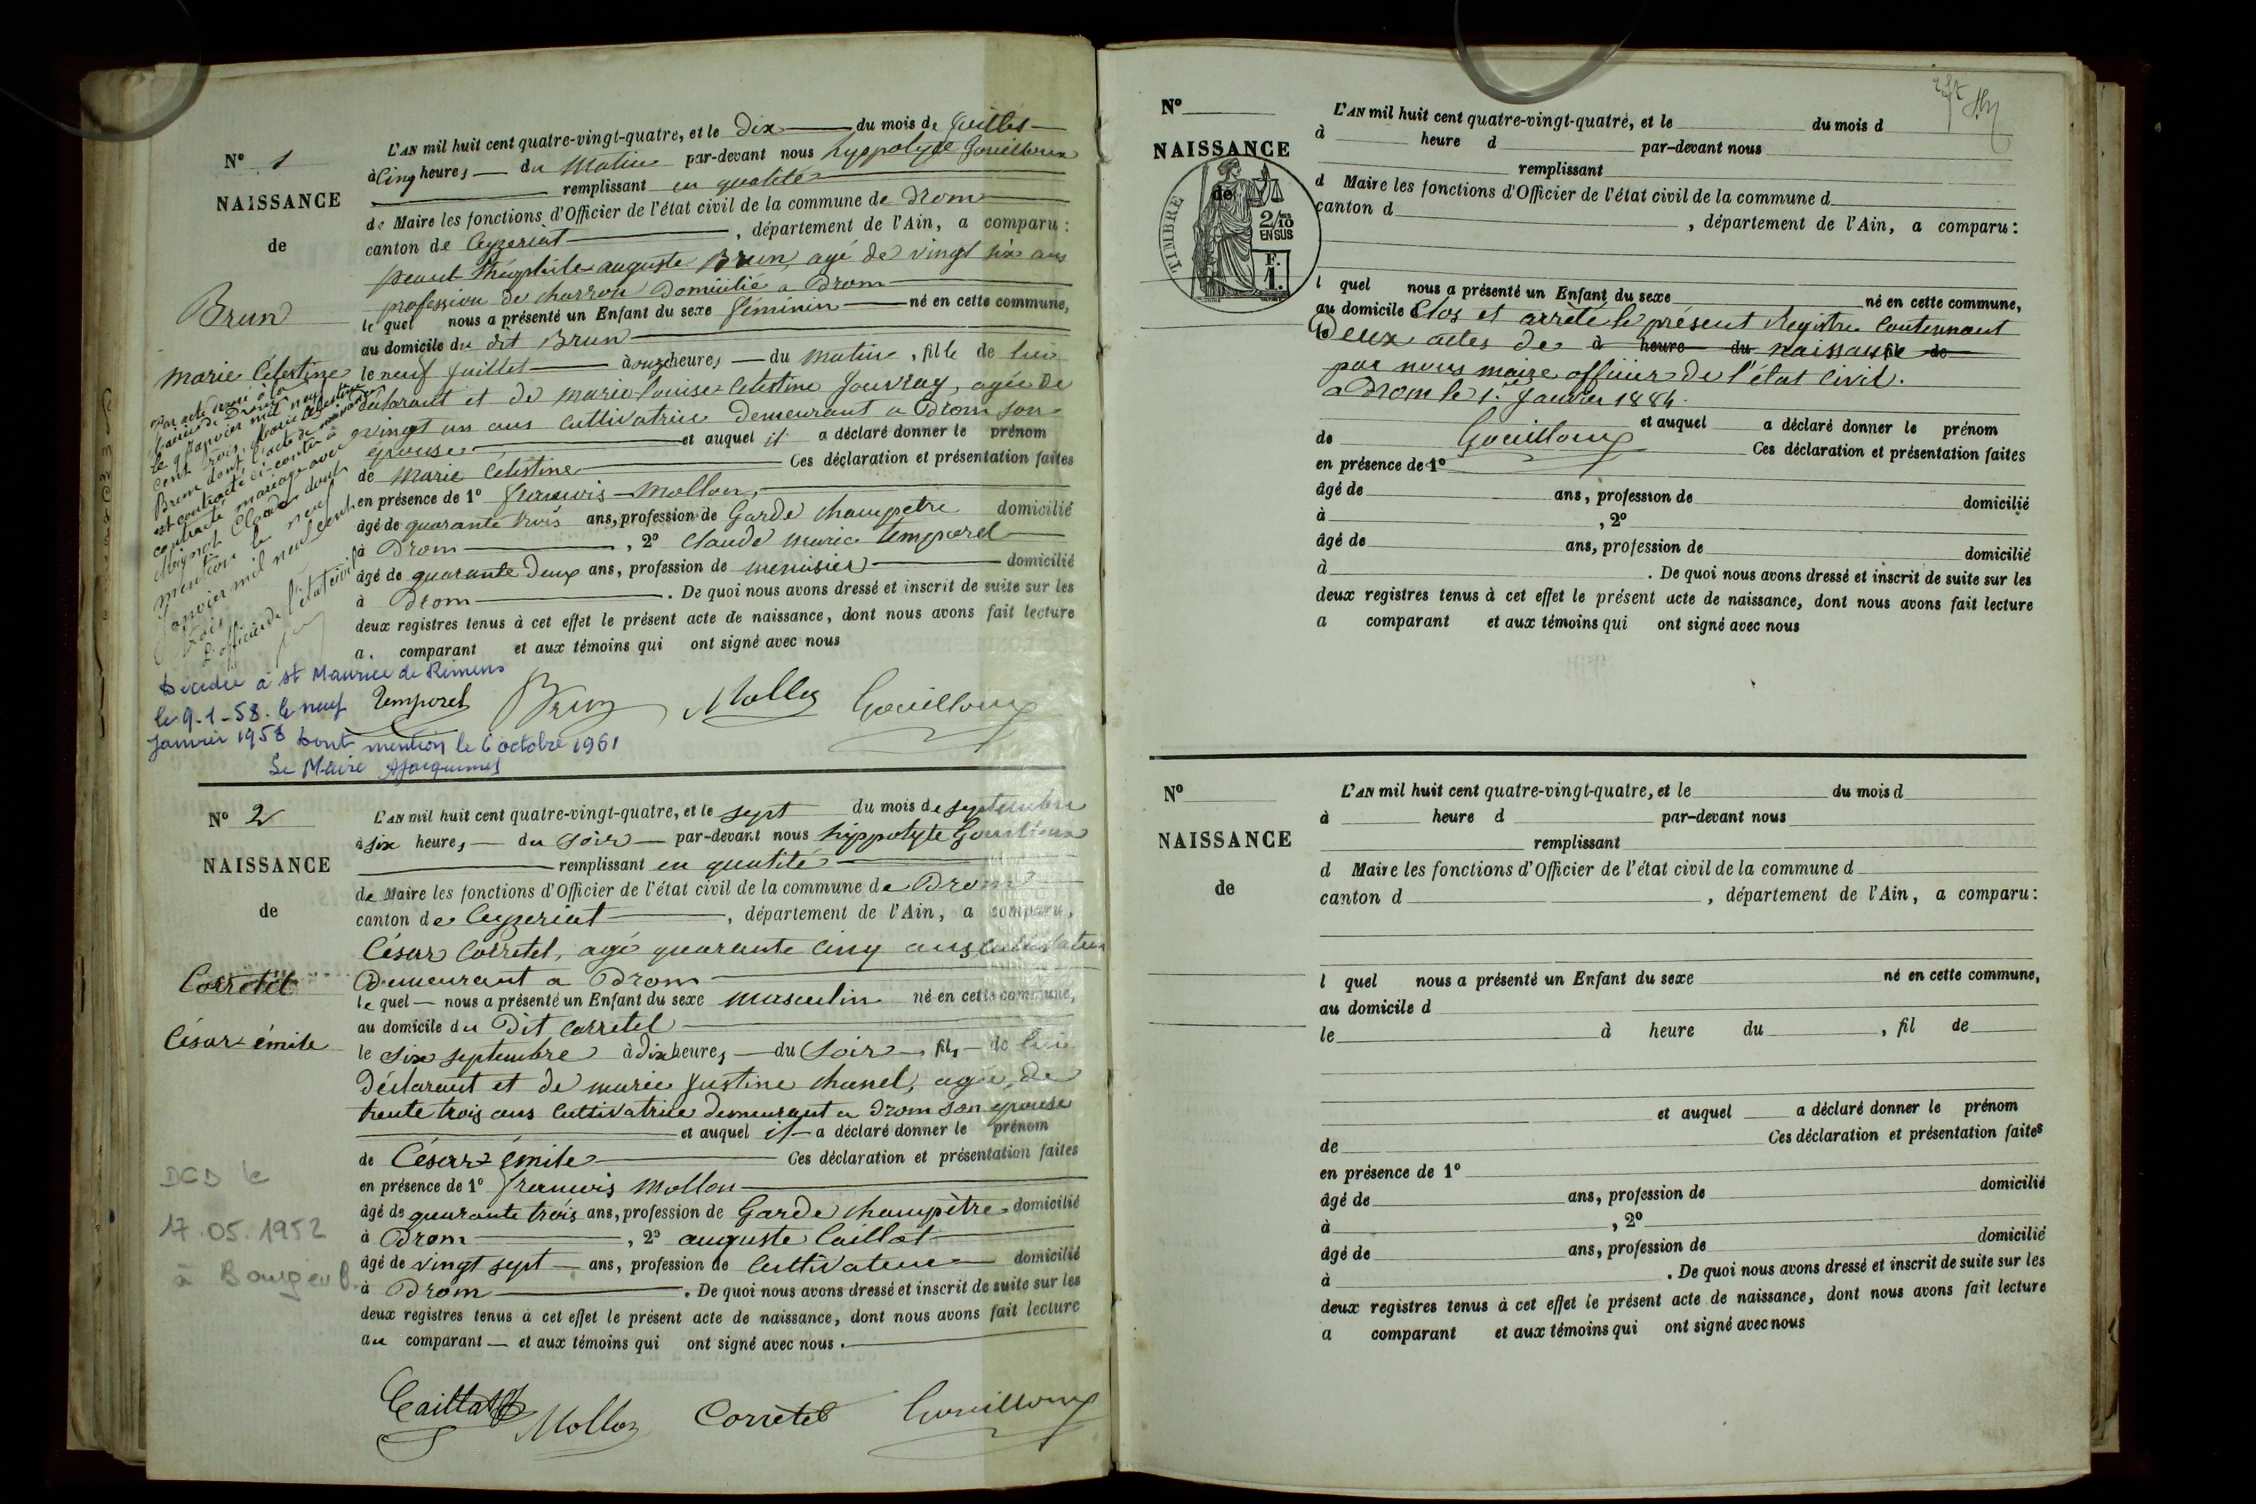 N° 1
NAISSANCE
de
Brun
Marie Célestine
L'AN mil huit cent quatre-vingt-quatre, et le dix du mois de Juillet
à Cinq heures du Matin par-devant nous hyppolyte Gouilloux
remplissant en qualité
de Maire les fonctions d'Officier de l'état civil de la commune de Drom
canton de Ceyzeriat, département de l'Ain, a comparu :
théophile auguste Brun, agé de vingt six ans
profession de charron Domicilié a Drom
le quel nous a présenté un Enfant du sexe féminin né en cette commune,
au domicile du dit Brun
le neuf Juillet à onze heures du matin, fille de lui
déclarant et de marie louise Célestine Jouvray, agée de
vingt un ans Cultivatrice demeurant a Drom son
épouse et auquel il a déclaré donner le prénom
de Marie Célestine Ces déclaration et présentation faites
en présence de 1° françois Mollon,
âgé de quarante trois ans, profession de Garde champetre domicilié
à Drom, 2° Claude marie temporel
âgé de quarante Deux ans, profession de menuisier domicilié
à Drom. De quoi nous avons dressé et inscrit de suite sur les
deux registres tenus à cet effet le présent acte de naissance, dont nous avons fait lecture
a. comparant et aux témoins qui ont signé avec nous
Par acte reçu à la
Mairie de Drom
le 9 Janvier mil neuf
cent trois, Marie Célestine
Brun dont l'acte de naissance
est ci-contre a
contracté mariage avec
Claude dont
mention le neuf
Janvier mil neuf cent
trois
L'officier de l'état civil
Décédée à St Maurice de Rémens
le 9-1-58. le neuf
Janvier 1958 Dont mention le 6 octobre 1961
Le Maire
Temporel Brun Mollon Gouilloux
N° 2
NAISSANCE
de
Corretel
César émile
L'AN mil huit cent quatre-vingt-quatre, et le sept du mois de septembre
à six heures du soir par-devant nous hyppolyte Gouilloux
remplissant en qualité
de Maire les fonctions d'Officier de l'état civil de la commune de Drom
canton de Ceyzeriat, département de l'Ain, a comparu,
César Corretel, agé quarante cinq ans cultivateur
Demeurant a Drom
le quel nous a présenté un Enfant du sexe masculin né en cette commune,
au domicile du Dit Corretel
le six septembre à dix heures du soir, fils de lui
Déclarant et de marie Justine chanel, agée de
trente trois ans Cultivatrice demeurant a Drom son épouse
et auquel il a déclaré donner le prénom
de César émile Ces déclaration et présentation faites
en présence de 1° françois Mollon
âgé de quarante trois ans, profession de Garde champètre domicilié
à Drom, 2° auguste Caillat
âgé de vingt sept ans, profession de Cultivateur domicilié
à Drom. De quoi nous avons dressé et inscrit de suite sur les
deux registres tenus à cet effet le présent acte de naissance, dont nous avons fait lecture
au comparant et aux témoins qui ont signé avec nous.
DCD le
17.05.1952
à Bourg en B.
Caillat Mollon Corretel Gouilloux
N°
NAISSANCE
de
TIMBRE
2/10
EN SUS
F.
1.
L'AN mil huit cent quatre-vingt-quatre, et le du mois d
à heure d par-devant nous
remplissant
d Maire les fonctions d'Officier de l'état civil de la commune d
canton d, département de l'Ain, a comparu :
l quel nous a présenté un Enfant du sexe né en cette commune,
au domicile Clos et arrêté le présent Registre Contennant
le Deux actes de à heure du naissance fil de
par nous maire officier de l'état Civil.
a Drom le 1er Janvier 1884.
et auquel a déclaré donner le prénom
de Gouilloux Ces déclaration et présentation faites
en présence de 1°
âgé de ans, profession de domicilié
à, 2°
âgé de ans, profession de domicilié
à. De quoi nous avons dressé et inscrit de suite sur les
deux registres tenus à cet effet le présent acte de naissance, dont nous avons fait lecture
a comparant et aux témoins qui ont signé avec nous
N°
NAISSANCE
de
L'AN mil huit cent quatre-vingt-quatre, et le du mois d
à heure d par-devant nous
remplissant
d Maire les fonctions d'Officier de l'état civil de la commune d
canton d, département de l'Ain, a comparu :
l quel nous a présenté un Enfant du sexe né en cette commune,
au domicile d
le à heure du, fil de
et auquel a déclaré donner le prénom
de Ces déclaration et présentation faites
en présence de 1°
âgé de ans, profession de domicilié
à, 2°
âgé de ans, profession de domicilié
à. De quoi nous avons dressé et inscrit de suite sur les
deux registres tenus à cet effet le présent acte de naissance, dont nous avons fait lecture
a comparant et aux témoins qui ont signé avec nous